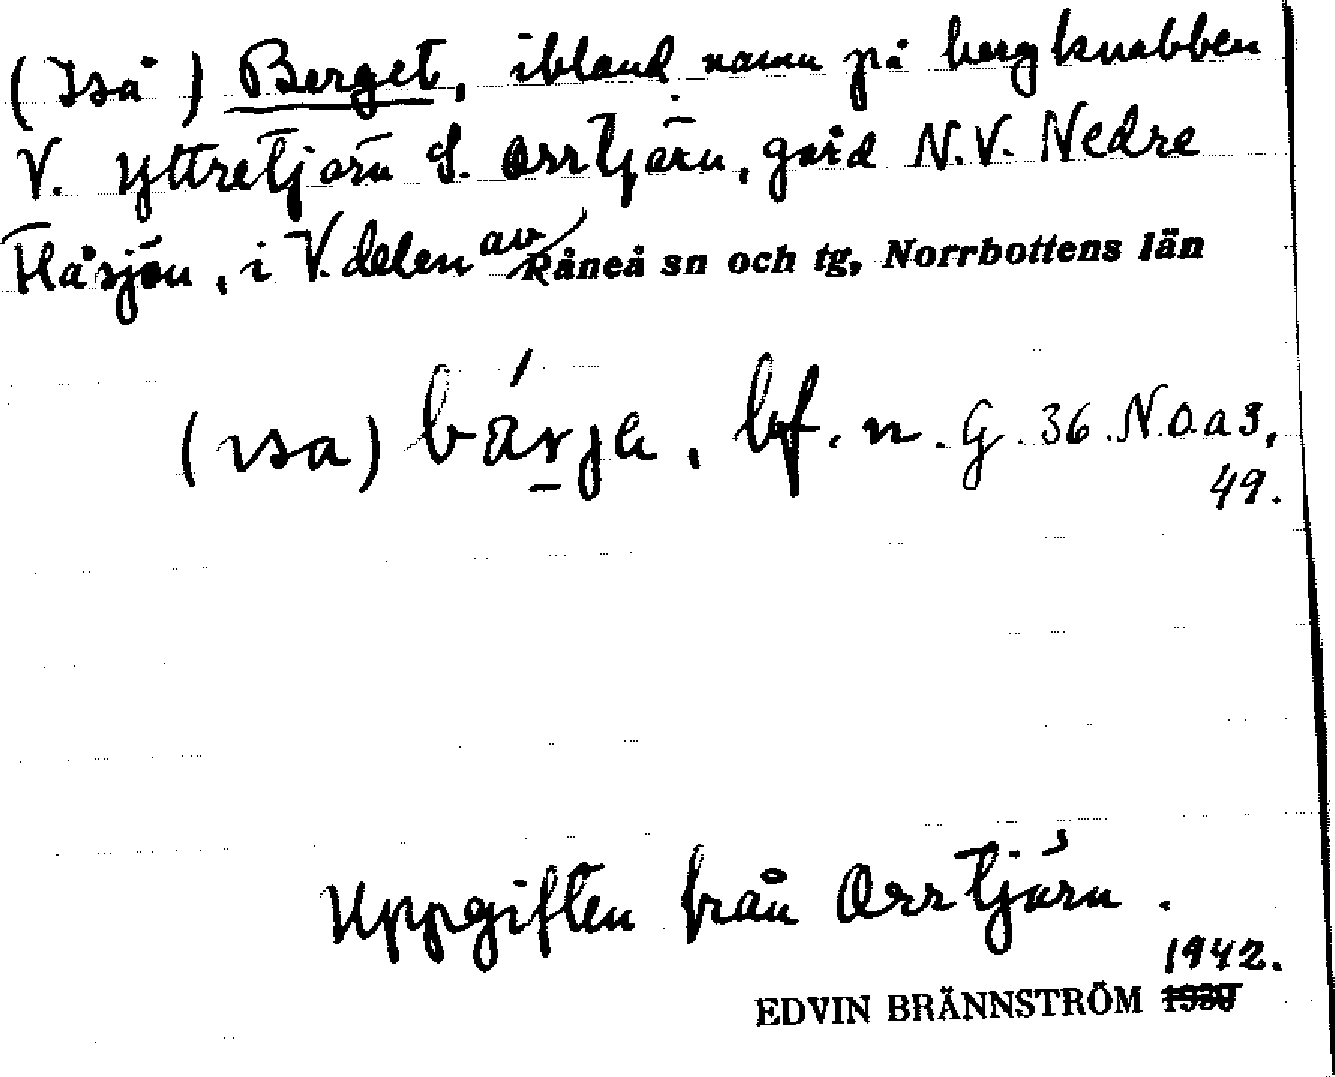 (Iså) Berget, ibland namn på bergknabben
V. Yttretjärn S. Orrtjärn, gård N.V. Nedre
Flåsjön, i V. delen av Råneå sn och tg, Norrbottens län
(ısa) bárje, bf. n. G. 36. N.O. a 3,
49.
Uppgiften från Orrtjärn.
1942.
EDVIN BRÄNNSTRÖM 1930